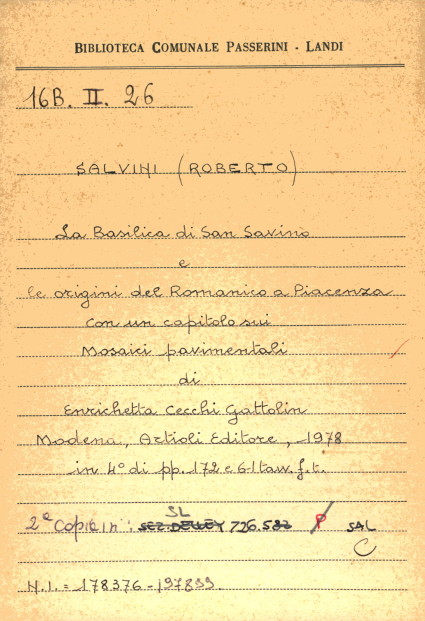 BIBLIOTECA COMUNALE PASSERINI - LANDI
16B. II. 26
SALVINI (ROBERTO)
La Basilica di San Savino
e
le origini del Romanico a Piacenza
con un capitolo sui
Mosaici pavimentali
di
Enrichetta Cecchi Gattolin
Modena, Artioli Editore, 1978
in 4° di pp. 172 e 61 tav. f. t.
SL
2ª Copia in: 726.583 P SAL
C
N.I. = 178376 - 197899.